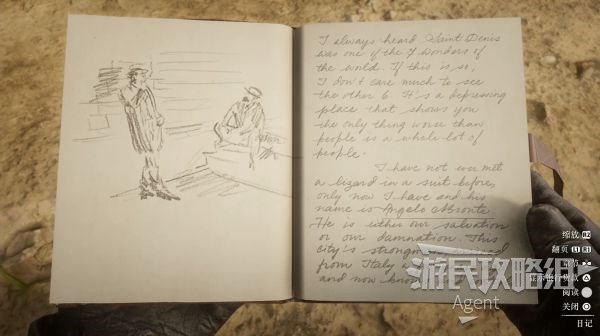 I always heard Saint Denis
was one if the 7 wonders of
the world. If this is so,
I don't care much to see
the other 6. It's a depressing
place that shows you
the only thing worse than
people is a whole lot of
people.
I have not ever met
a lizard in a suit before,
only now I have and his
name is Angelo Bronte
He is either our salvation
or our damnation. This
city's
from Italy
and now
游民攻略组
Agent
缩放 R2
翻页 L1 R1
阅读
关闭
日记